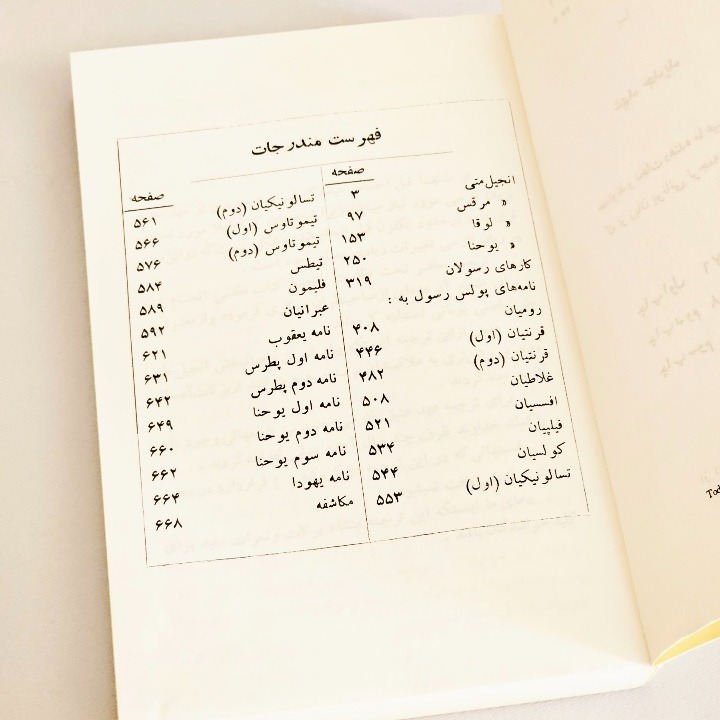 فهرست مندرجات
صفحه
انجیل متی ۳
« مرقس ۹۷
« لوقا ۱۵۳
« یوحنا ۲۵۰
کارهای رسولان ۳۱۹
نامه‌های پولس رسول به :
رومیان ۴۰۸
قرنتیان (اول) ۴۴۶
قرنتیان (دوم) ۴۸۲
غلاطیان ۵۰۸
افسسیان ۵۲۱
فیلپیان ۵۳۴
کولسیان ۵۴۴
تسالونیکیان (اول) ۵۵۳
صفحه
تسالونیکیان (دوم) ۵۶۱
تیموتاوس (اول) ۵۶۶
تیموتاوس (دوم) ۵۷۶
تیطس ۵۸۴
فلیمون ۵۸۹
عبرانیان ۵۹۲
نامه یعقوب ۶۲۱
نامه اول پطرس ۶۳۱
نامه دوم پطرس ۶۴۲
نامه اول یوحنا ۶۴۹
نامه دوم یوحنا ۶۶۰
نامه سوم یوحنا ۶۶۲
نامه یهودا ۶۶۴
مکاشفه ۶۶۸